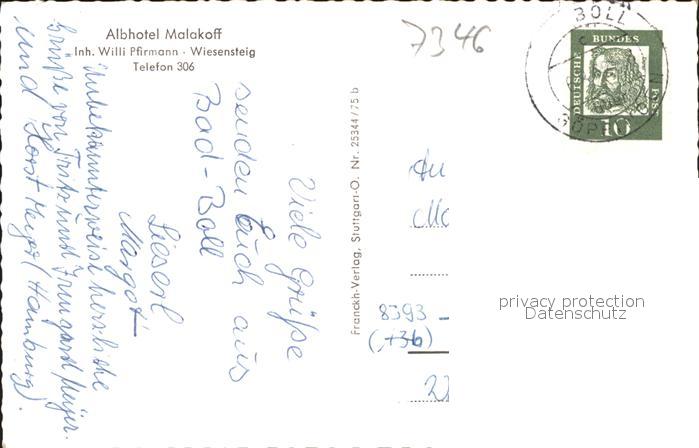 Albhotel Malakoff
Inh. Willi Pfirmann · Wiesensteig
Telefon 306
7346
BOLL
GÖPP
DEUTSCHE BUNDESPOST
10
Viele Grüße
senden Euch aus
Bad-Boll
Lieserl
Margot
Unbekannterweise herzliche
Grüße von Fritz und Irmgard Meyer
und Horst Meyer (Hamburg).
Franckh-Verlag, Stuttgart-O. Nr. 25344/75 b
An
8393 -
(+36)
privacy protection
Datenschutz